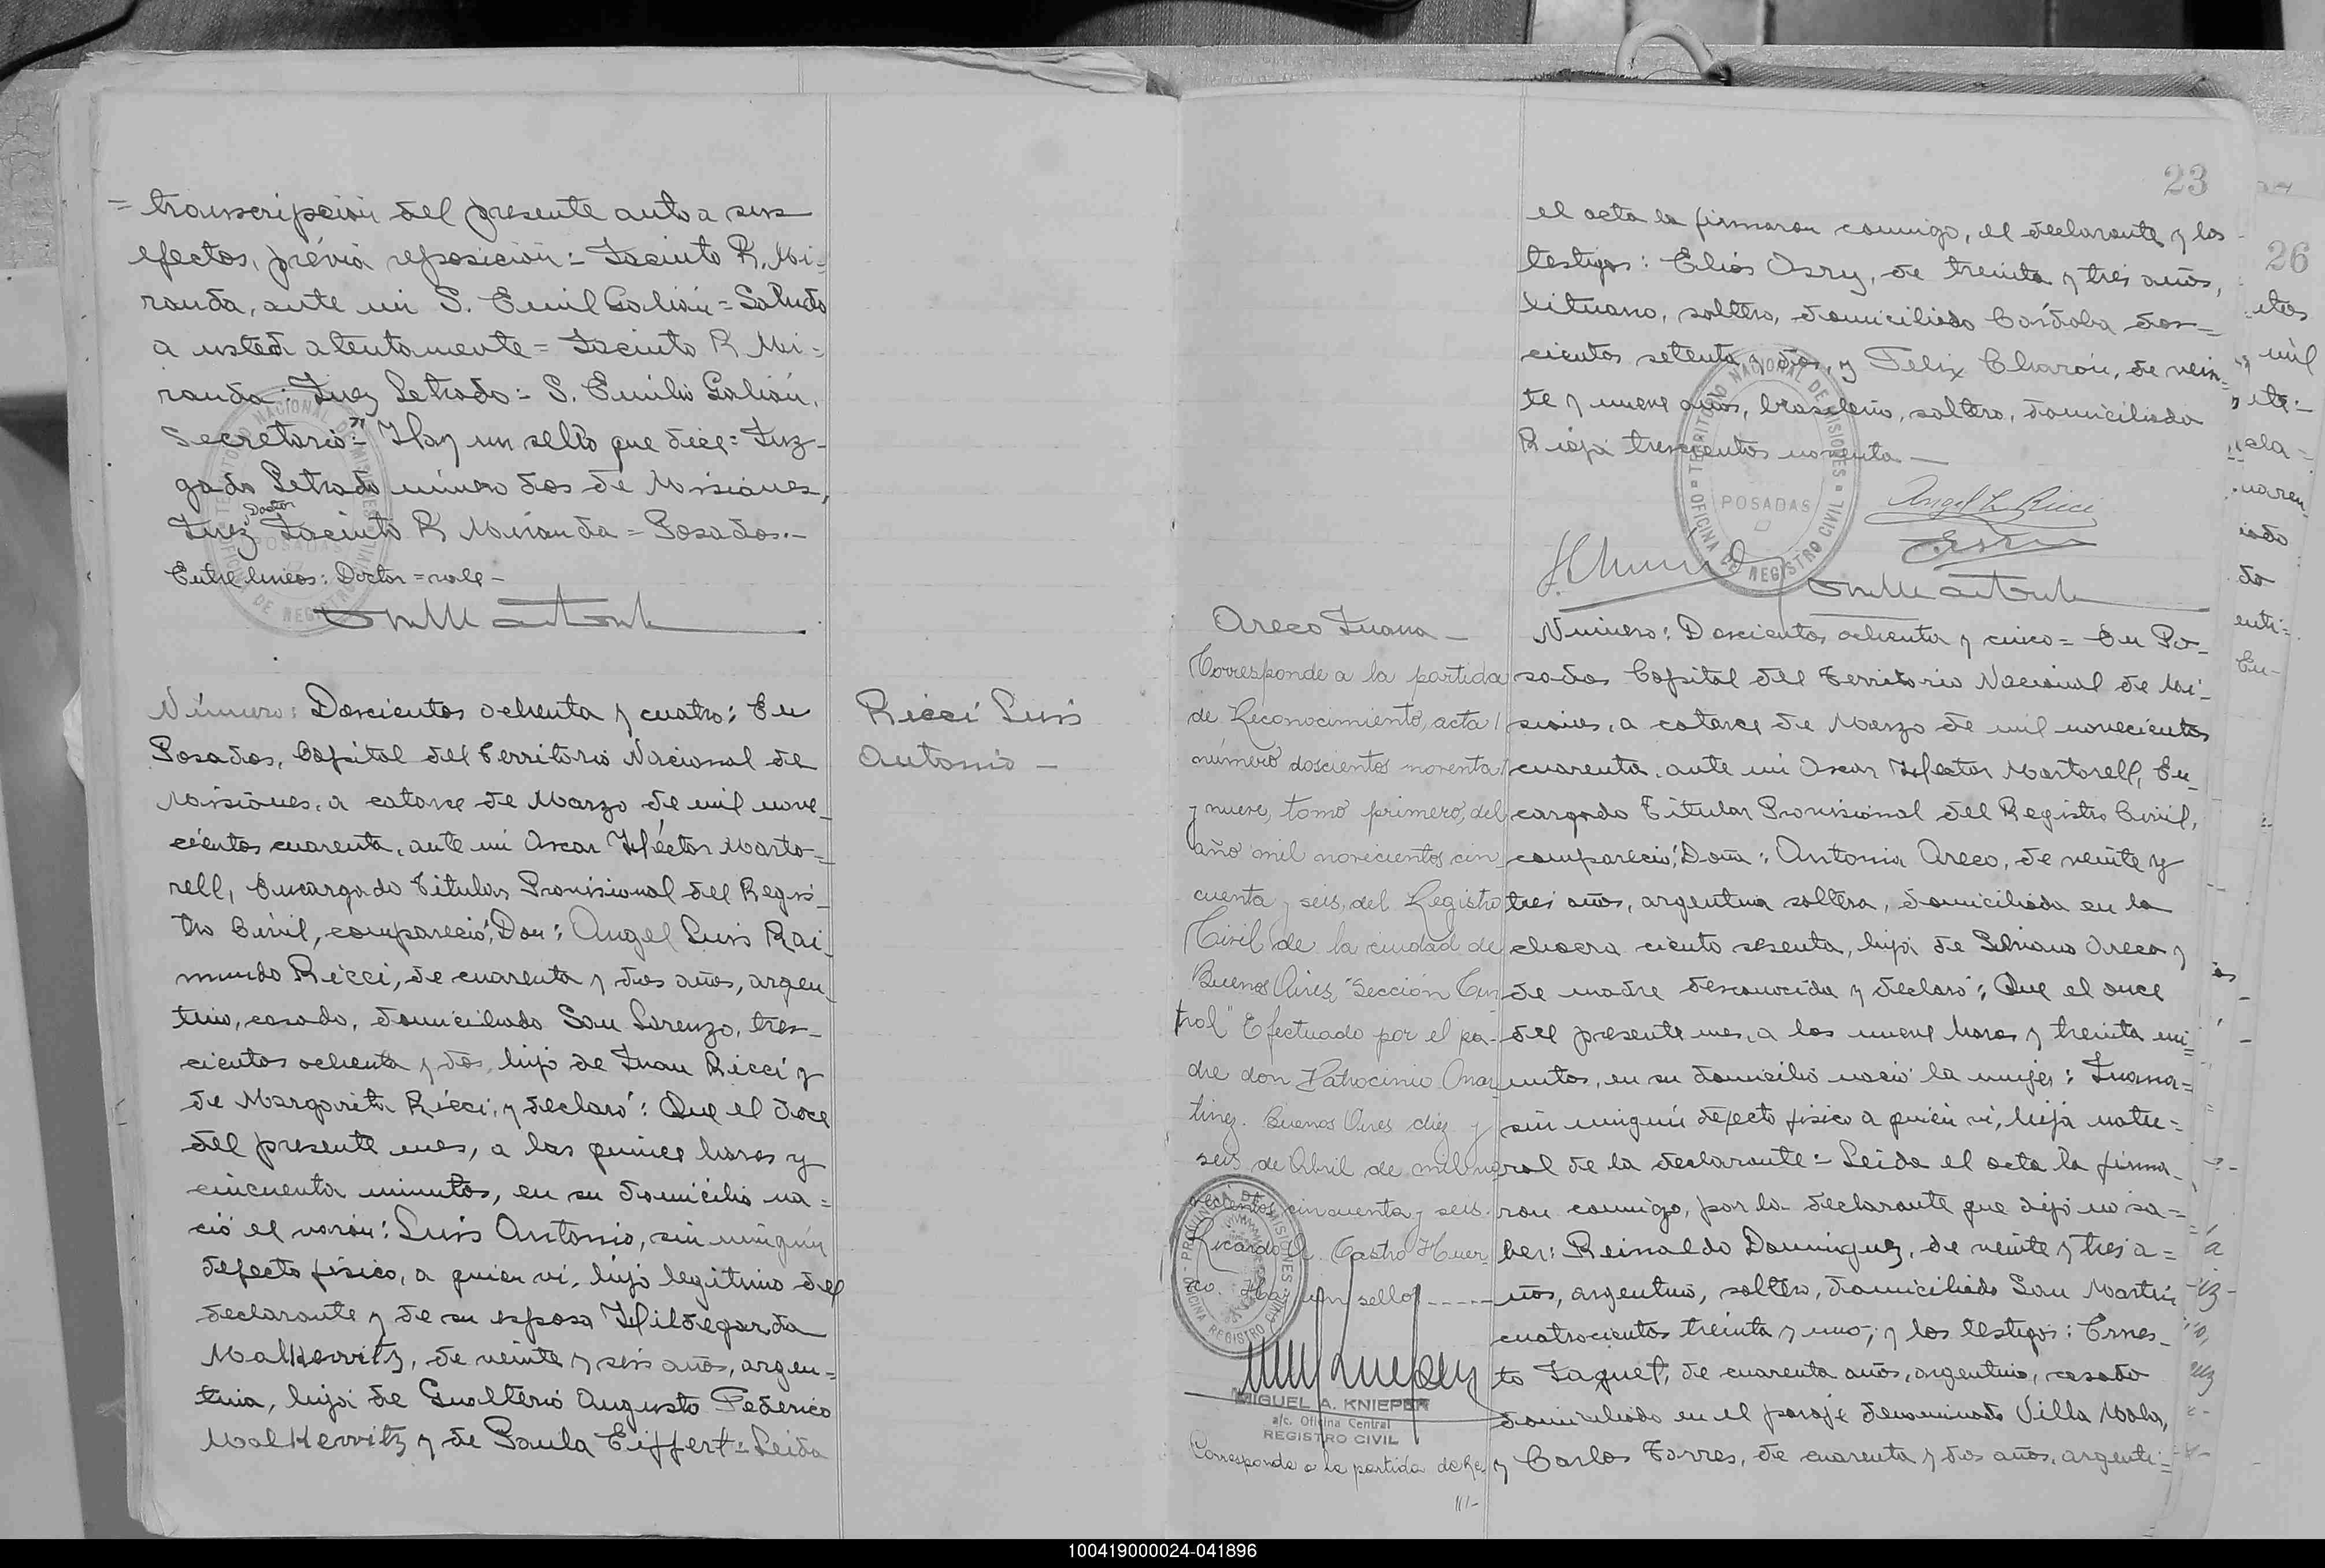 = transcripción del presente auto a sus
efectos, prévia reposición = Jacinto R. Mi-
randa, ante mi S. Emil Galián = Saludo
a usted atentamente = Jacinto R Mi-
randa: Juez Letrado = S. Emilio Galián.
Secretario = Hay un sello que dice: Juz-
gado Letrado número dos de Misiones,
Doctor
Juez Jacinto R Miranda = Posadas.-
Entre lineas: Doctor = vale -
Número: Doscientos ochenta y cuatro: En
Posadas, Capital del Territorio Nacional de
Misiones, a catorce de Marzo de mil nove-
cientos cuarenta, ante mi Oscar Héctor Marto-
rell, Encargado Titular Provisional del Regis-
tro Civil, compareció: Don: Angel Luis Rai-
mundo Ricci, de cuarenta y dos años, argen-
tino, casado, domiciliado San Lorenzo, tres-
cientos ochenta y dos, hijo de Juan Ricci y
de Margarita Ricci, y declaró: Que el doce
del presente mes, a las quince horas y
cincuenta minutos, en su domicilio na-
ció el varón: Luis Antonio, sin ningún
defecto fisico, a quien vi, hijo legitimo del
declarante y de su esposa Hildegarda
Malkewitz, de veinte y seis años, argen-
tina, hija de Gualterio Augusto Federico
Malkewitz y de Paula Eiffert = Leida
Ricci Luis
Antonio -
23
el acta la firmaron conmigo, el declarante y los
testigos: Elias Osry, de treinta y tres años,
lituano, soltero, domiciliado Córdoba dos-
cientos setenta y dos, y Felix Charón, de vein-
te y nueve años, brasileño, soltero, domiciliado
Rioja trescientos noventa -
TERRITORIO NACIONAL DE MISIONES
POSADAS
OFICINA DE REGISTRO CIVIL
Angel L. Ricci
Areco Juana -
Corresponde a la partida
de Reconocimiento, acta
número doscientos noventa
y nueve, tomo primero, del
año mil novecientos cin-
cuenta y seis, del Registro
Civil de la ciudad de
Buenos Aires, "Sección Cen-
tral" Efectuado por el pa-
dre don Patrocinio Mar-
tinez. Buenos Aires diez y
seis de Abril de mil no-
vecientos cincuenta y seis.
Ricardo Castro Huer-
Hay un sello -----
MIGUEL A. KNIEPER
a/c. Oficina Central
REGISTRO CIVIL
Corresponde a la partida de Re-
///-
Número: Doscientos ochenta y cinco = En Po-
sadas Capital del Territorio Nacional de Mi-
siones, a catorce de Marzo de mil novecientos
cuarenta, ante mi Oscar Héctor Martorell, En-
cargado Titular Provisional del Registro Civil,
compareció: Doña: Antonia Areco, de veinte y
tres años, argentina soltera, domiciliada en la
chacra ciento sesenta, hija de Silvano Areco y
de madre desconocida y declaró: Que el once
del presente mes, a las nueve horas y treinta mi-
nutos, en su domicilio nació la mujer: Juana-
sin ningún defecto fisico a quien vi, hija natu-
ral de la declarante = Leida el acta la firma-
ron conmigo, por la declarante que dijo no sa-
ber: Reinaldo Dominguez, de veinte y tres a-
ños, argentino, soltero, domiciliado San Martin
cuatrocientos treinta y uno; y los testigos: Ernes-
to Jaquet, de cuarenta años, argentino, casado
domiciliado en el paraje denominado Villa Mola,
y Carlos Torres, de cuarenta y dos años, argenti-
26
mil
100419000024-041896